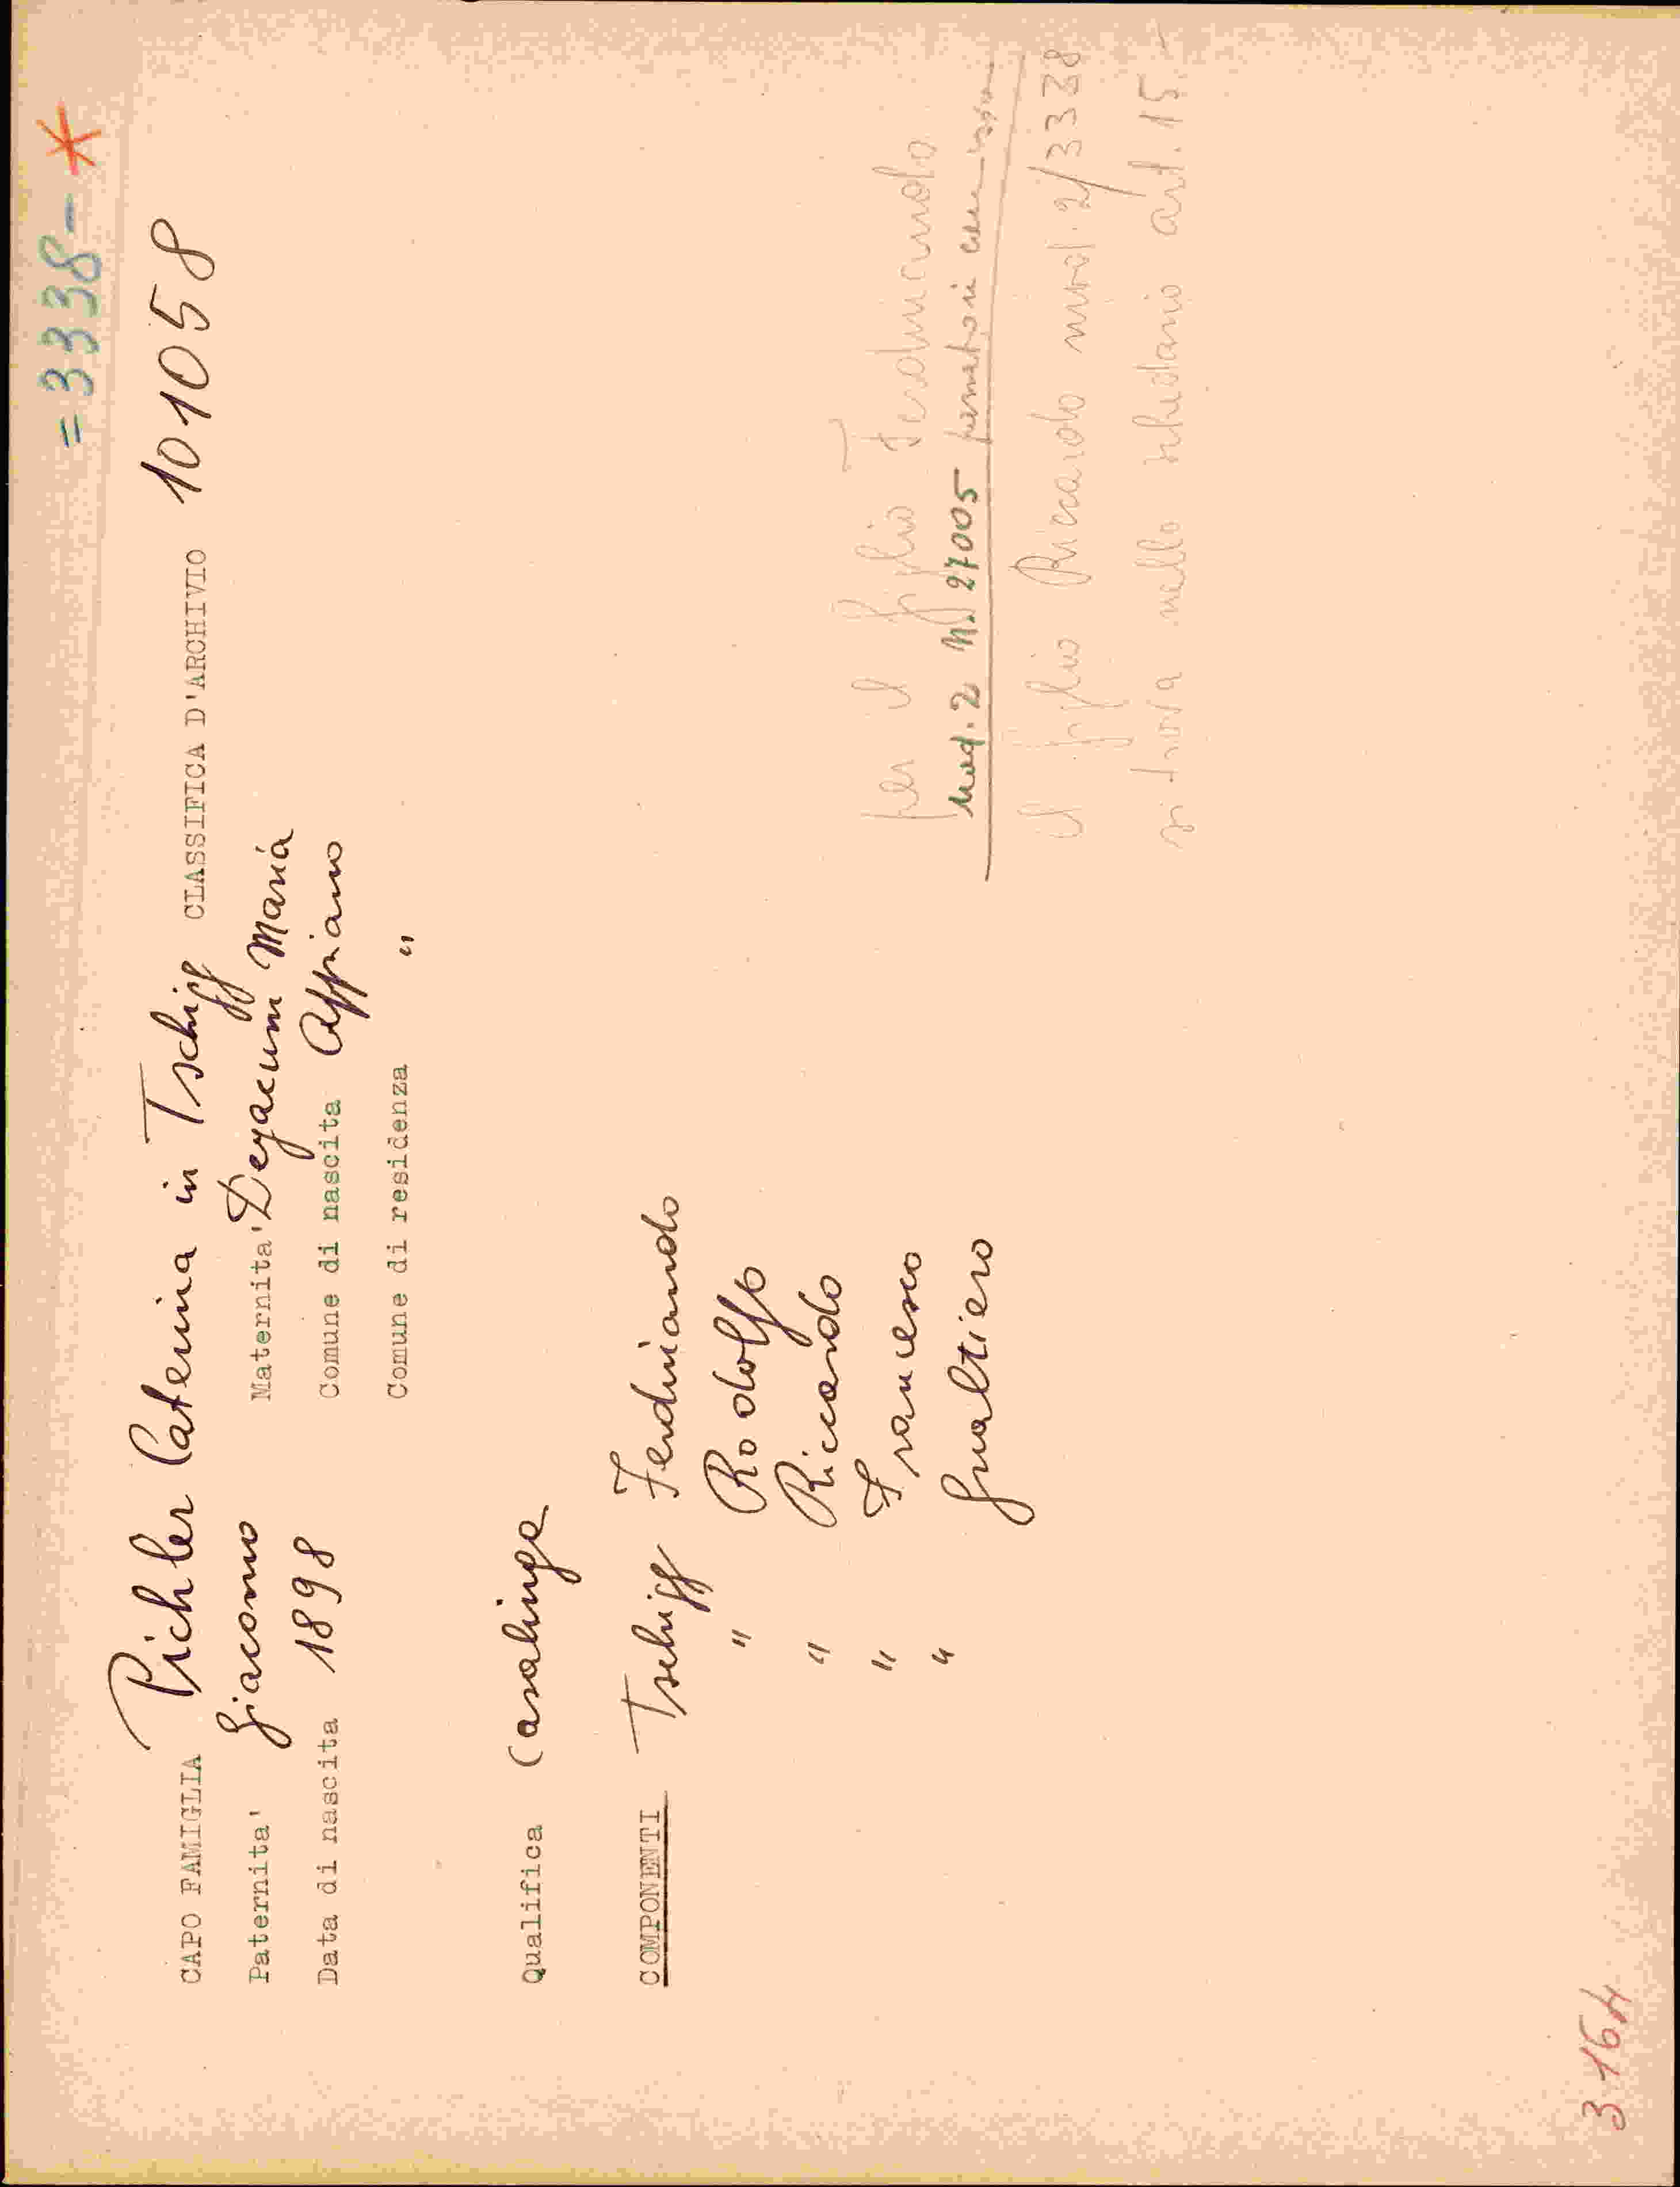 = 3338 - *
CAPO FAMIGLIA Pichler Caterina in Tschigg CLASSIFICA D'ARCHIVIO 101058
Paternita' Giacomo Maternita' Degacum Maria
Data di nascita 1898 Comune di nascita Appiano
Comune di residenza "
Qualifica Casalinga
COMPONENTI Tschigg Ferdinando
" Rodolfo
" Riccardo
" Francesco
" Gualtiero
per il figlio Ferdinando
Mod. 2 N. 27005
il figlio Riccardo mod. 2/3338
si trova nello schedario art. 15 -
3164